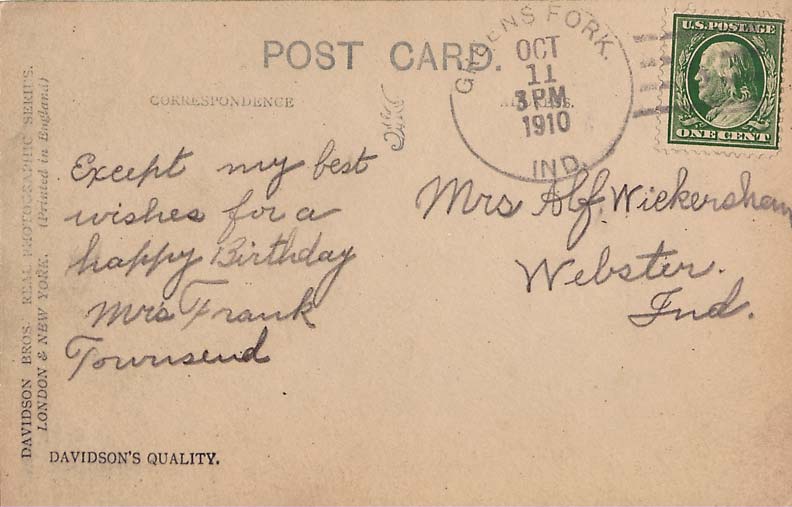 POST CARD.
CORRESPONDENCE
ADDRESS.
GREENS FORK.
OCT
11
3 PM
1910
IND.
U.S. POSTAGE
ONE CENT
Except my best
wishes for a
happy Birthday
Mrs Frank
Townsend
Mrs Alf. Wickersham
Webster.
Ind.
DAVIDSON BROS. REAL PHOTOGRAPHIC SERIES.
LONDON & NEW YORK. (Printed in England)
DAVIDSON'S QUALITY.